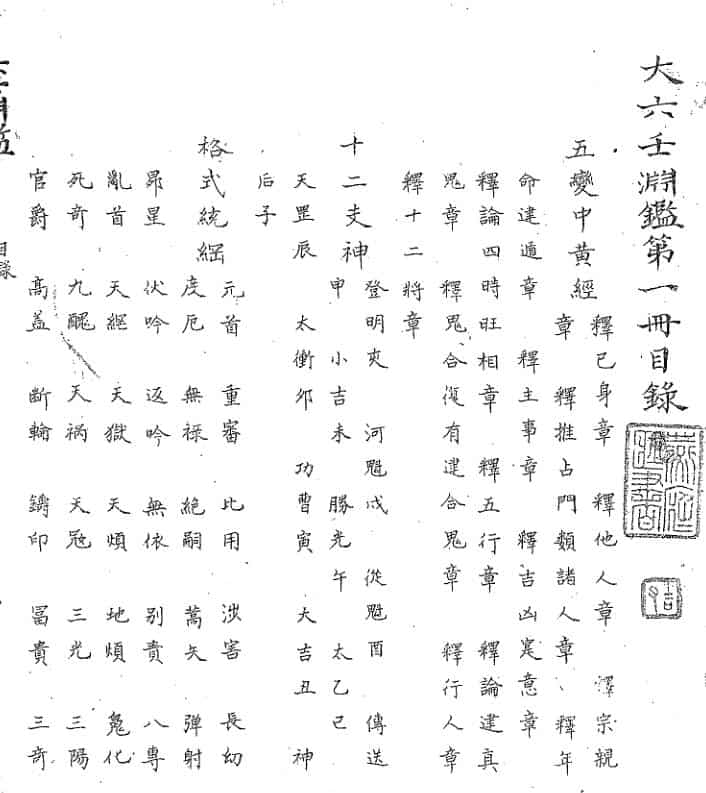 大六壬淵鑑第一冊目錄
五變中黃經 釋己身章 釋他人章 釋宗親
章 釋推占門類諸人章、釋年
命建遁章 釋主事章 釋吉凶寔意章
釋論四時旺相章 釋五行章 釋論建真
鬼章 釋鬼合復有建合鬼章 釋行人章
釋十二將章
十二支神 登明亥 河魁戌 從魁酉 傳送
申 小吉未 勝光午 太乙巳
天罡辰 太衝卯 功曹寅 大吉丑 神
后子
格式統綱 元首 重審 比用 涉害 長幼
度厄 無祿 絕嗣 萬矢 彈射
昴星 伏吟 返吟 無依 别責 八專
亂首 天網 天獄 天煩 地煩 鬼化
死奇 九醜 天禍 天寇 三光 三陽
官爵 高蓋 斷輪 鑄印 富貴 三奇
目錄